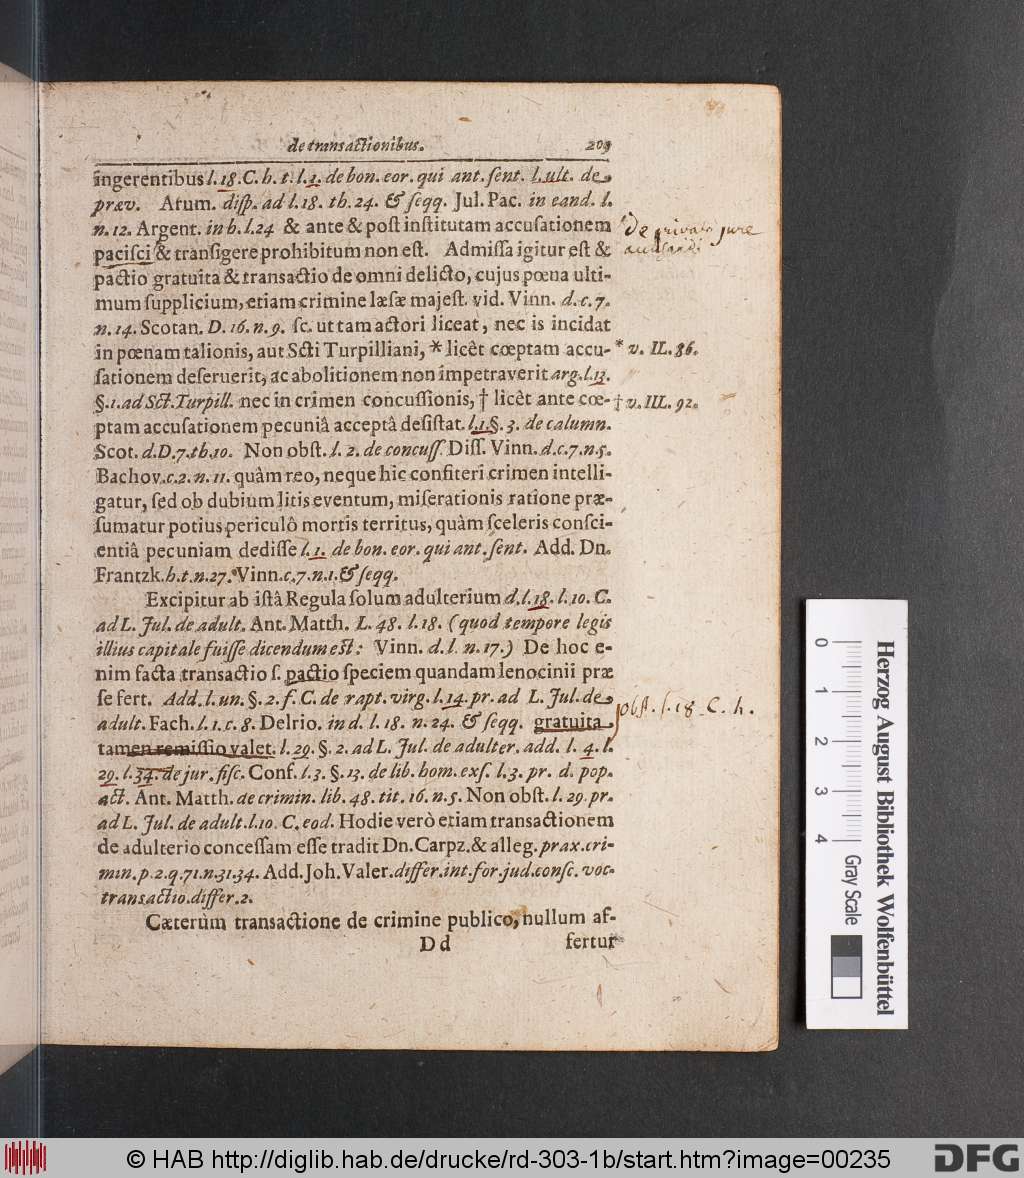 de transactionibus. 209
ingerentibus l. 18. C. h. t. l. 1. de bon. eor. qui ant. sent. l. ult. de
præv. Arum. disp. ad l. 18. th. 24. & seqq. Jul. Pac. in eand. l.
n. 12. Argent. in h. l. 24 & ante & post institutam accusationem
pacisci & transigere prohibitum non est. Admissa igitur est &
pactio gratuita & transactio de omni delicto, cujus pœna ulti-
mum supplicium, etiam crimine læsæ majest. vid. Vinn. d. c. 7.
n. 14. Scotan. D. 16. n. 9. sc. ut tam actori liceat, nec is incidat
in pœnam talionis, aut Scti Turpilliani, * licêt cœptam accu-
sationem deseruerit, ac abolitionem non impetraverit arg. l. 13.
§. 1. ad Sct. Turpill. nec in crimen concussionis, † licèt ante cœ-
ptam accusationem pecuniâ acceptâ desistat. l. 1. §. 3. de calumn.
Scot. d. D. 7. th. 10. Non obst. l. 2. de concuss. Diss. Vinn. d. c. 7. n. 5.
Bachov. c. 2. n. 11. quàm reo, neque hic confiteri crimen intelli-
gatur, sed ob dubium litis eventum, miserationis ratione præ-
sumatur potius periculô mortis territus, quàm sceleris consci-
entiâ pecuniam dedisse l. 1. de bon. eor. qui ant. sent. Add. Dn.
Frantzk. h. t. n. 27. Vinn. c. 7. n. 1. & seqq.
Excipitur ab istâ Regula solum adulterium d. l. 18. l. 10. C.
ad L. Jul. de adult. Ant. Matth. L. 48. l. 18. (quod tempore legis
illius capitale fuisse dicendum est: Vinn. d. l. n. 17.) De hoc e-
nim facta transactio s. pactio speciem quandam lenocinii præ
se fert. Add. l. un. §. 2. f. C. de rapt. virg. l. 14. pr. ad L. Jul. de
adult. Fach. l. 1. c. 8. Delrio. in d. l. 18. n. 24. & seqq. gratuita
tamen remissio valet. l. 29. §. 2. ad L. Jul. de adulter. add. l. 4. l.
29. l. 34. de jur. fisc. Conf. l. 3. §. 13. de lib. hom. exf. l. 3. pr. d. pop.
act. Ant. Matth. de crimin. lib. 48. tit. 16. n. 5. Non obst. l. 29. pr.
ad L. Jul. de adult. l. 10. C. eod. Hodie verò etiam transactionem
de adulterio concessam esse tradit Dn. Carpz. & alleg. prax. cri-
min. p. 2. q. 71. n. 31. 34. Add. Joh. Valer. differ. int. for. jud. consc. voc.
transactio. differ. 2.
Cæterùm transactione de crimine publico, nullum af-
Dd fertur
De privato jure
accusandi
* v. II. 86.
† v. III. 92.
obst. l. 18. C. h.
0 1 2 3 4
Gray Scale
Herzog August Bibliothek Wolfenbüttel
© HAB http://diglib.hab.de/drucke/rd-303-1b/start.htm?image=00235
DFG